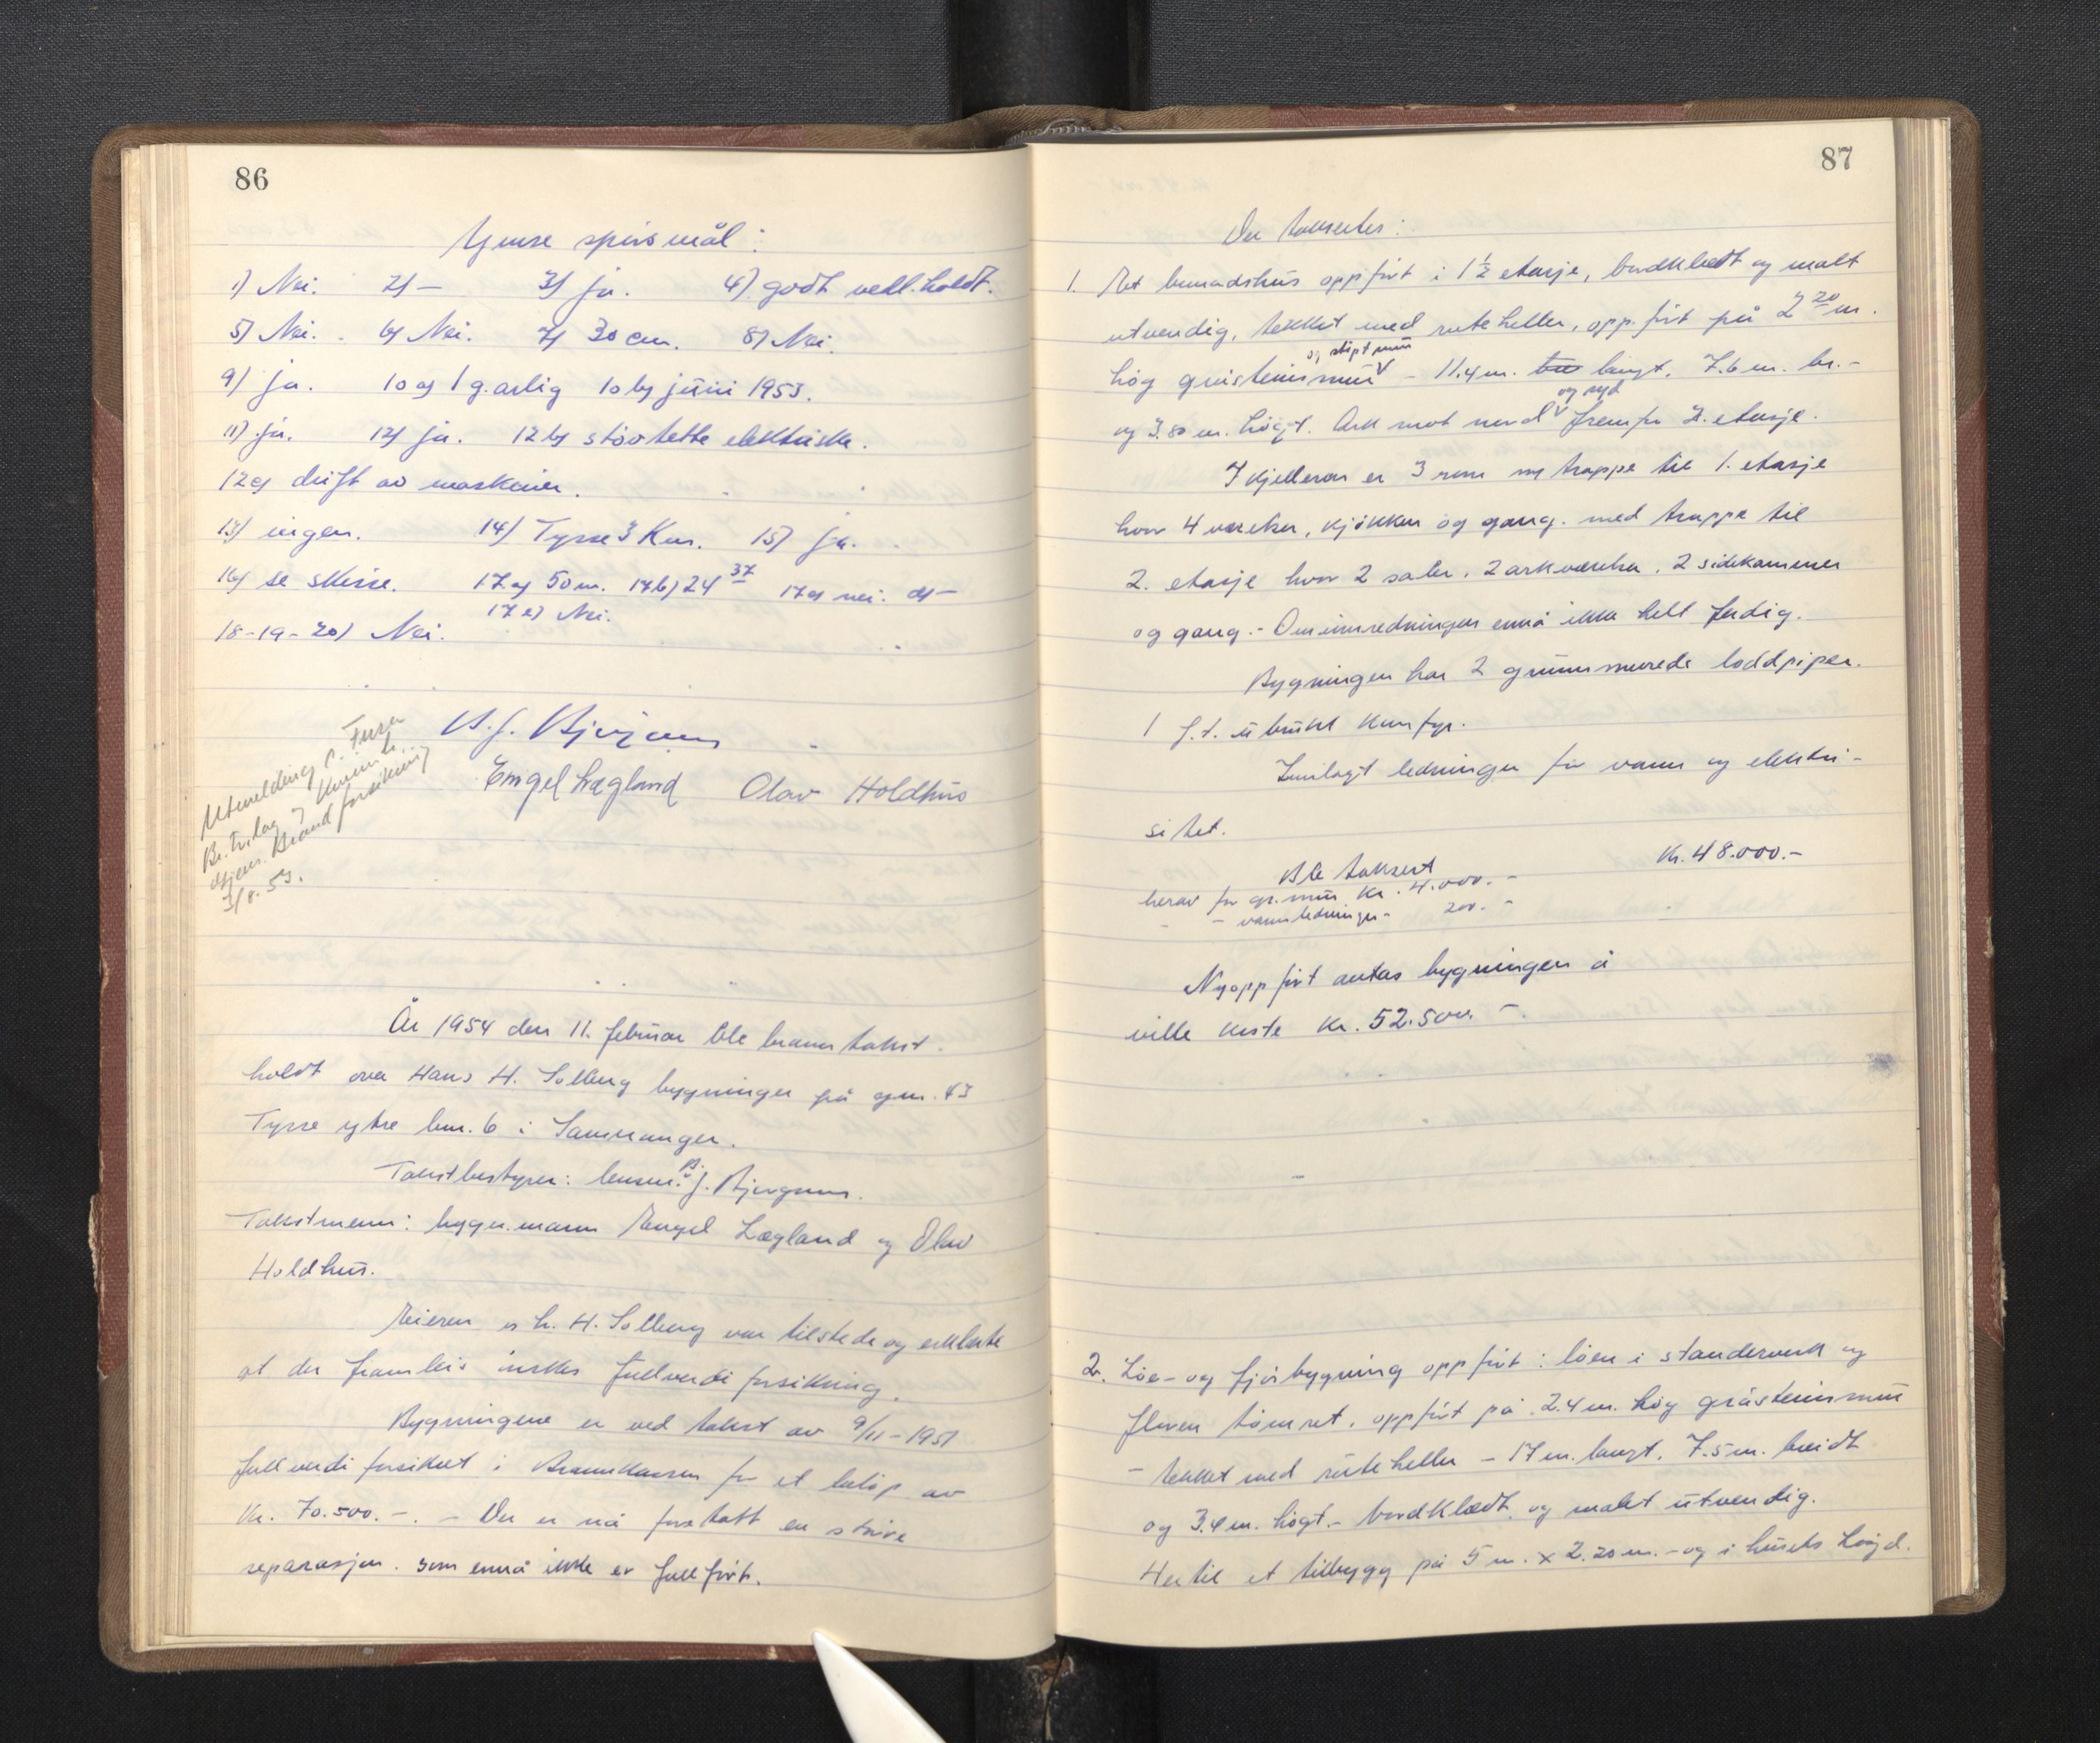 86
Ymse spørsmål:
1) Nei. 2) — 3) ja. 4) godt vedl.holdt.
5) Nei. 6) Nei. 7) 30 cm. 8) Nei.
9) ja. 10a) 1 g. årlig 10b) juni 1953.
11) ja. 12) ja. 12b) støvtette elektriske.
12c) drift av maskiner.
13) ingen. 14) Tysse 3 Km. 15) ja.
16) se skisse. 17a) 50 m. 17b) 24 37 17c) nei. d) —
17e) Nei.
18-19-20) Nei.
Utmelding
Br.tr.lag
gjen. Brand forsikring
3/8.53.
Engel Lægland Olav Holdhus
År 1954 den 11. februar ble branntakst
holdt over Hans H. Solberg bygninger på gnr. 43
Tysse ytre bnr. 6 i Samnanger.
Takstbestyrer: lensm. B. J. Bjørgum.
Takstmenn: bygn.mann Engel Lægland og Olav
Holdhus.
Eieren H. H. Solberg var tilstede og erklærte
at der framleis ønskes fullverdi forsikring.
Bygningene er ved takst av 9/11-1951
fullverdi forsikret i Brannkassen for et beløp av
Kr. 70.500.-. - Der er nå foretatt en større
reparasjon. som ennå ikke er fullført.
87
Der takseres:
1. Et bunadshus oppført i 1 1/2 etasje, bordkledt og malt
utvendig, tekket med ruteheller, oppført på 2 20 m.
høg gråsteinsmur og støpt mur - 11.4 m. langt. 7.6 m. br.-
og 3.80 m. høgt. Ark mot nord og syd frem for 2. etasje.
I kjelleren er 3 rom og trappe til 1. etasje
hvor 4 værelser, kjøkken og gang. med trappe til
2. etasje hvor 2 saler. 2 arkværelser. 2 sidekammer
og gang.- Ominnredningen ennå ikke helt ferdig.
Bygningen har 2 grunnmurede loddpiper.
1 f.t. u brukt komfyr.
Innlagt ledninger for vann og elektri-
sitet.
Ble taksert Kr. 48.000.-
herav for gr.mur Kr. 4.000.-
- - vannledninger - 200.-
Nyoppført antas bygningen å
ville koste Kr. 52.500.-.
2. Løe- og fjøsbygning oppført: løen i standerverk og
floren tømret. oppført på 2.4 m. høg gråsteinsmur
- tekket med ruteheller - 17 m. langt. 7.5 m. breidt
og 3.4 m. høgt.- bordkledt. og malet utvendig.
Hertil et tilbygg på 5 m. x 2.20 m. - og i husets høgd.